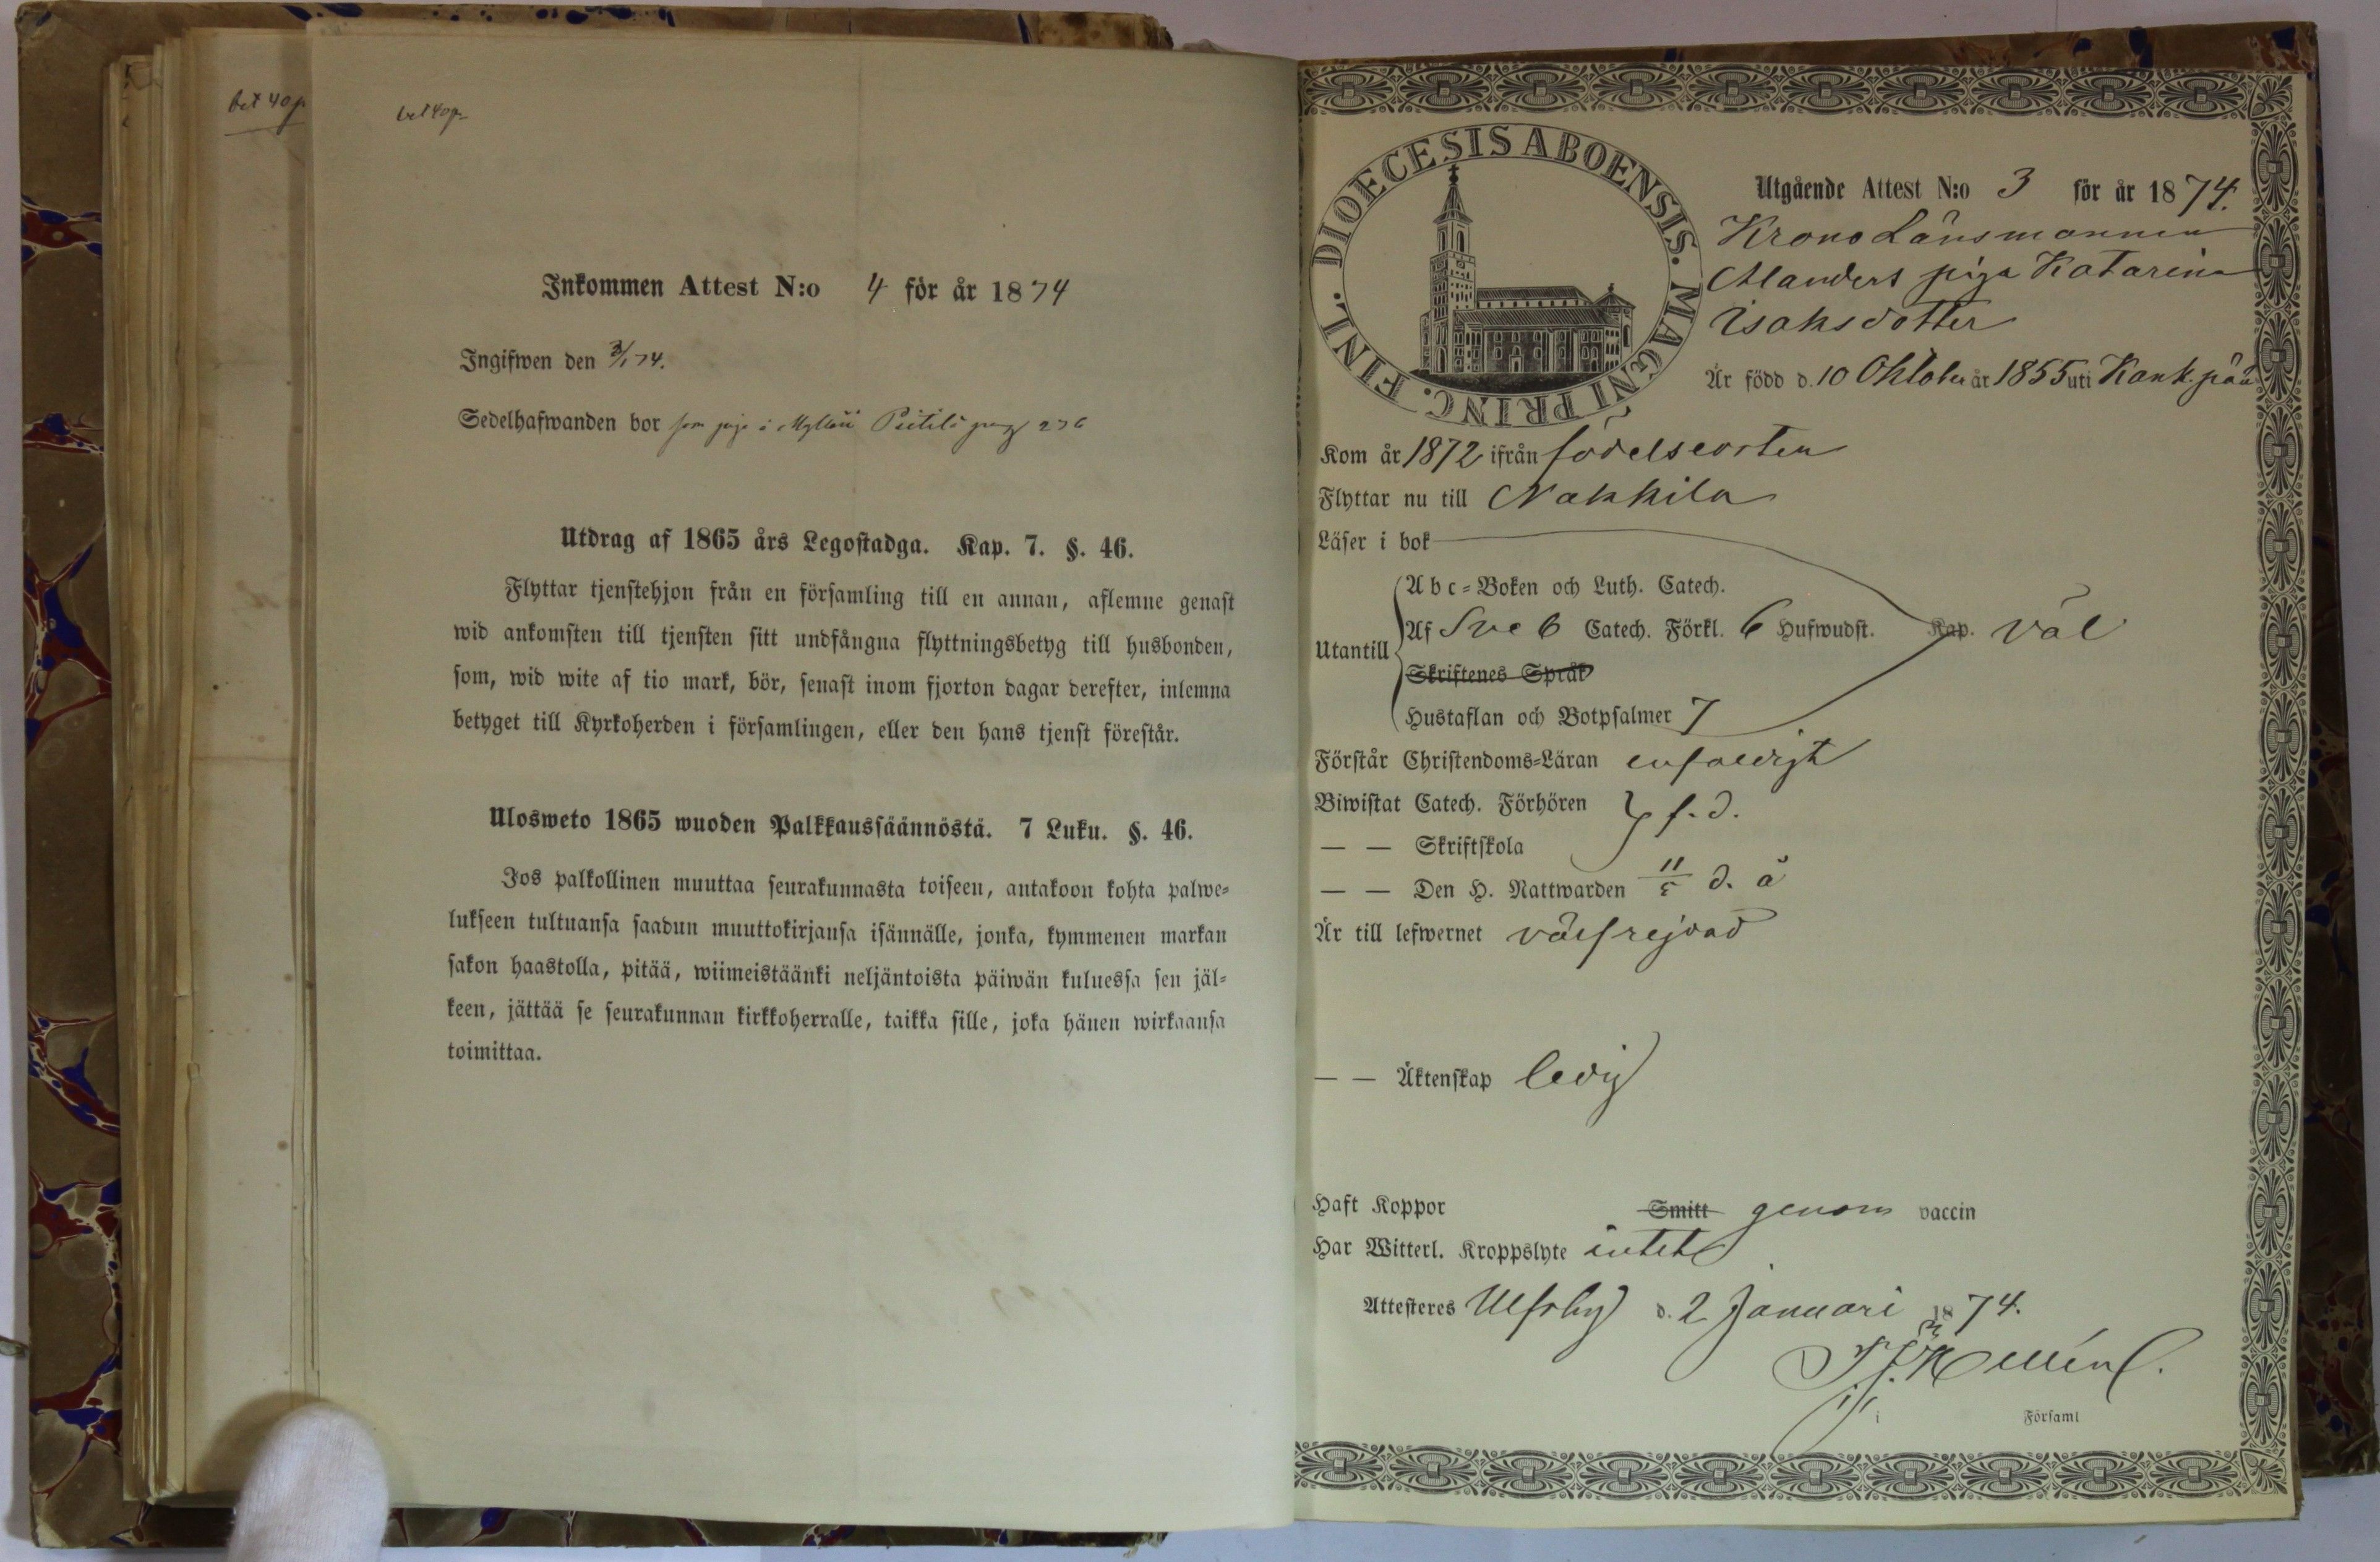 bet 40 p
bet 40 p
Inkommen Attest N:o 4 för år 1874
Ingifwen den 3/1 74.
Sedelhafwanden bor som piga i 236
Utdrag af 1865 års Legostadga. Kap. 7. §. 46.
Flyttar tjenstehjon från en församling till en annan, aflemne genast
wid ankomsten till tjensten sitt undfångna flyttningsbetyg till husbonden,
som, wid wite af tio mark, bör, senast inom fjorton dagar derefter, inlemna
betyget till Kyrkoherden i församlingen, eller den hans tjenst förestår.
Ulosweto 1865 wuoden Palkkaussäännöstä. 7 Luku. §. 46.
Jos palkollinen muuttaa seurakunnasta toiseen, antakoon kohta palwe-
lukseen tultuansa saadun muuttokirjansa isännälle, jonka, kymmenen markan
sakon haastolla, pitää, wiimeistäänki neljäntoista päiwän kuluessa sen jäl-
keen, jättää se seurakunnan kirkkoherralle, taikka sille, joka hänen wirkaansa
toimittaa.
DIOECESIS ABOENSIS. MAGNI PRINC. FINL.
Utgående Attest N:o 3 för år 1874.
Krono Länsmannen
Alanders piga Katarina
Isaksdotter
Är född d. 10 Oktober år 1855 uti Kank.pää
Kom år 1872 ifrån födelseorten
Flyttar nu till Nakkila
Läser i bok
Abc-Boken och Luth. Catech.
Utantill Af Sveb Catech. Förkl. 6 Hufwudst. Kap. väl
Skriftenes Språk
Hustaflan och Botpsalmer 7
Förstår Christendoms-Läran enfaldigt
Biwistat Catech. Förhören f. d.
— — Skriftskola
— — Den H. Nattwarden 11/5 d. å
Är till lefwernet välfrejdad
— — Äktenskap ledig
Haft Koppor Smitt genom vaccin
Har Witterl. Kroppslyte intet
Attesteres Ulfsby d. 2 Januari 1874.
i Församl